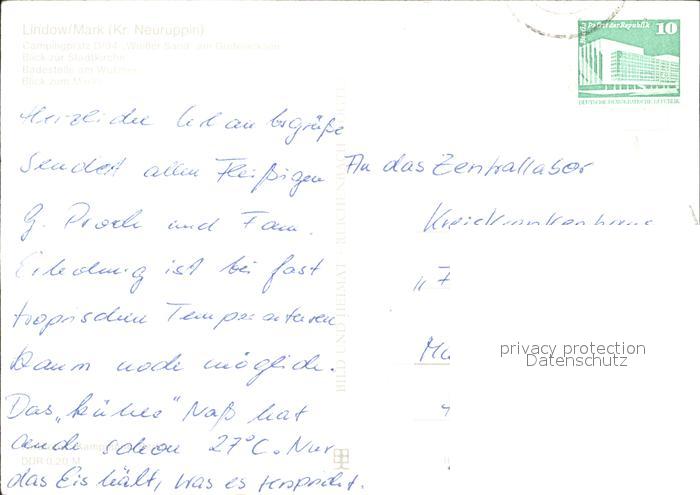 Lindow/Mark (Kr. Neuruppin)
Campingplatz D/94 „Weißer Sand" am Gudelacksee
Blick zur Stadtkirche
Badestelle am Wutzsee
Blick zum Markt
Berlin Palast der Republik 10
DEUTSCHE DEMOKRATISCHE REPUBLIK
Herzliche Urlaubsgrüße
Sendet allen Fleißigen
G. und Fam.
ist bei fast
tropischen Temperaturen
kaum noch möglich.
Das „kühle" Naß hat
auch schon 27°C. Nur
das Eis hält, was es verspricht.
An das Zentrallabor
Kreiskrankenhaus
BILD UND HEIMAT REICHENBACH
DDR 0,20 M
privacy protection
Datenschutz